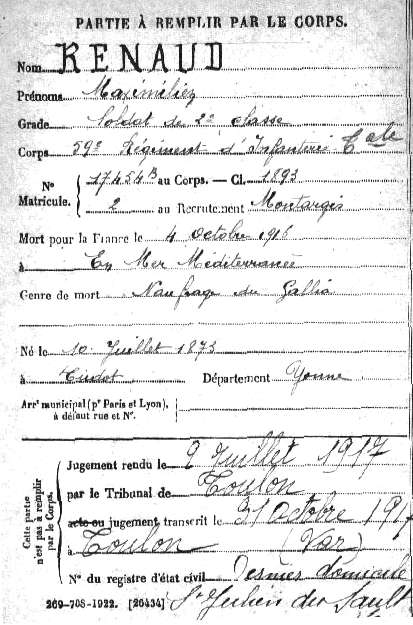 PARTIE À REMPLIR PAR LE CORPS.
Nom RENAUD
Prénoms Maximélien
Grade Soldat de 2e classe
Corps 59e Régiment d'Infanterie Cale
Nº Matricule. { 17454B au Corps. — Cl. 1893
2 au Recrutement Montargis
Mort pour la France le 4 octobre 1916
à En Mer Méditerranée
Genre de mort Naufrage du Gallia
Né le 10 Juillet 1873
à Cudot Département Yonne
Arrt municipal (pr Paris et Lyon), à défaut rue et Nº.
Cette partie n'est pas à remplir par le Corps.
Jugement rendu le 2 Juillet 1917
par le Tribunal de Toulon
acte ou jugement transcrit le 31 Octobre 1917
à Toulon (Var)
Nº du registre d'état civil Dernier domicile
269-708-1922. [26434] St Julien du Sault